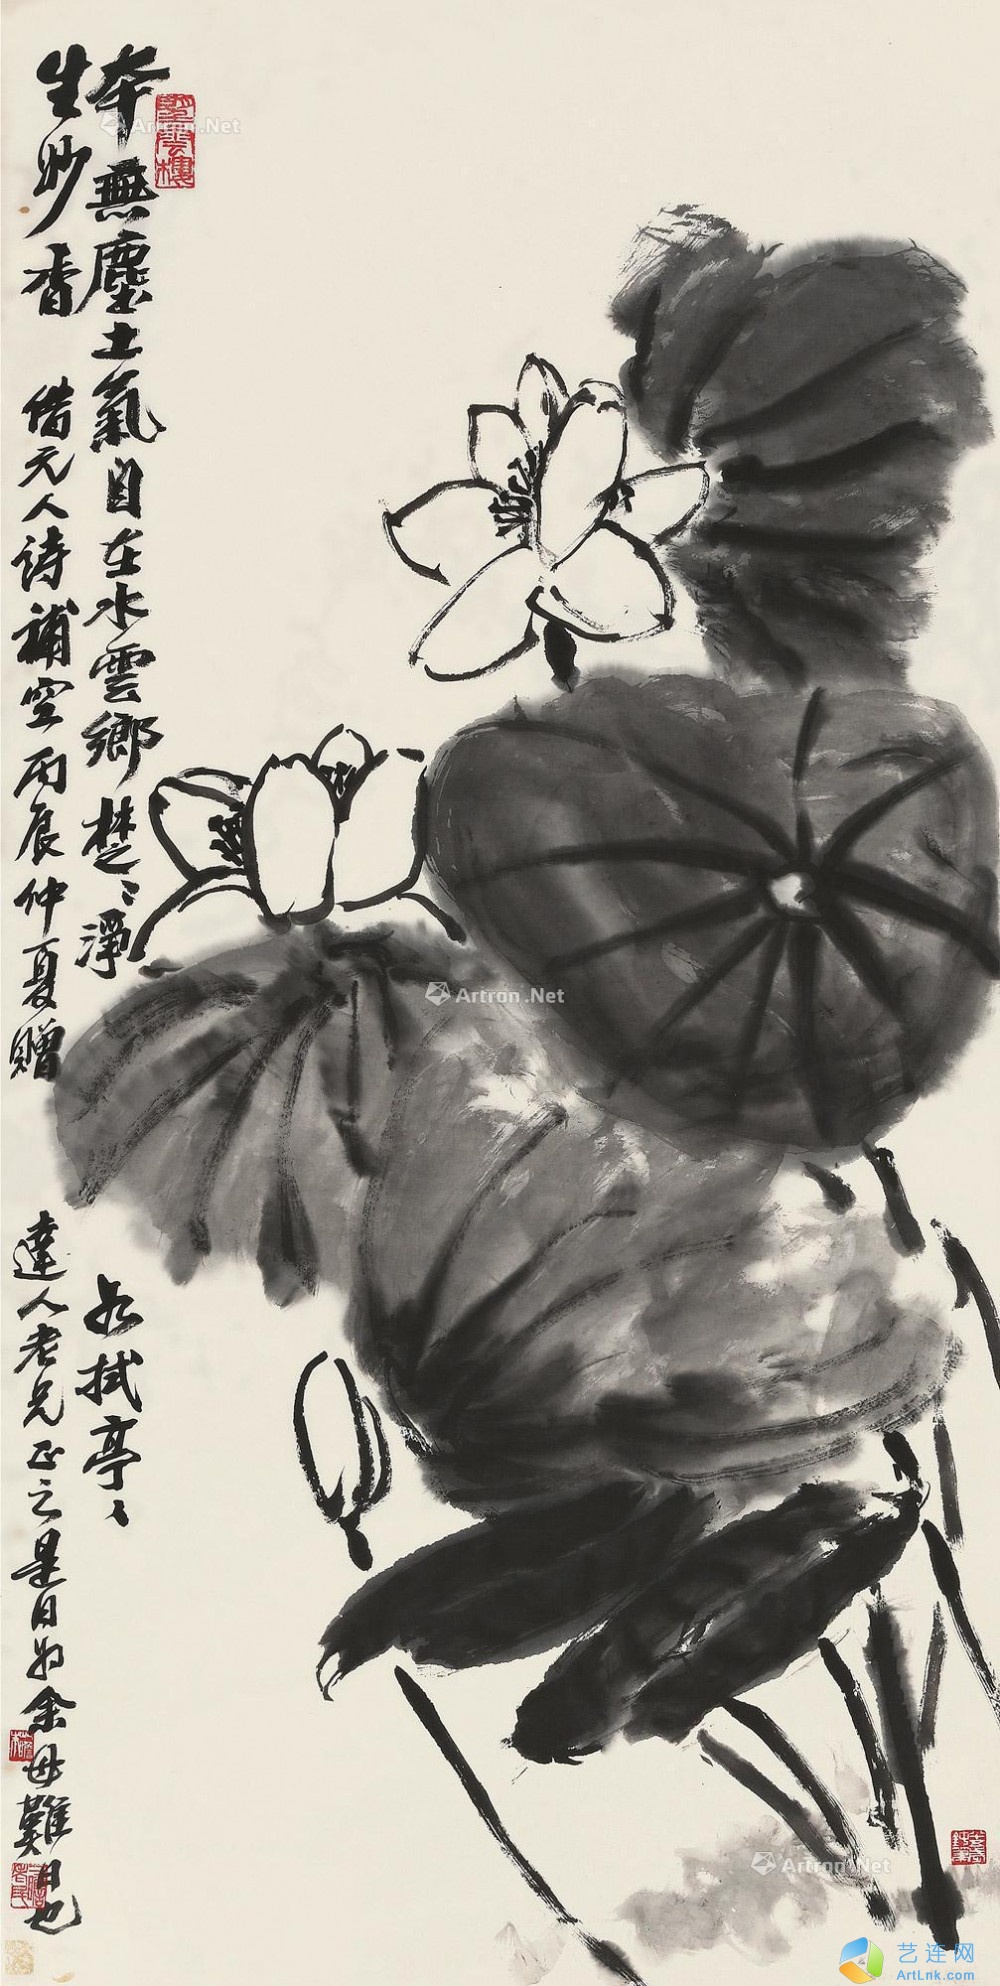 本無塵土氣自在水雲鄉楚〻淨
如拭亭〻
生妙香
借元人詩補空丙辰仲夏贈
達人老兄正之是日為余母難日也
聽雲樓
Artron.Net
Artron.Net
Artron.Net
艺连网
ArtLnk.com